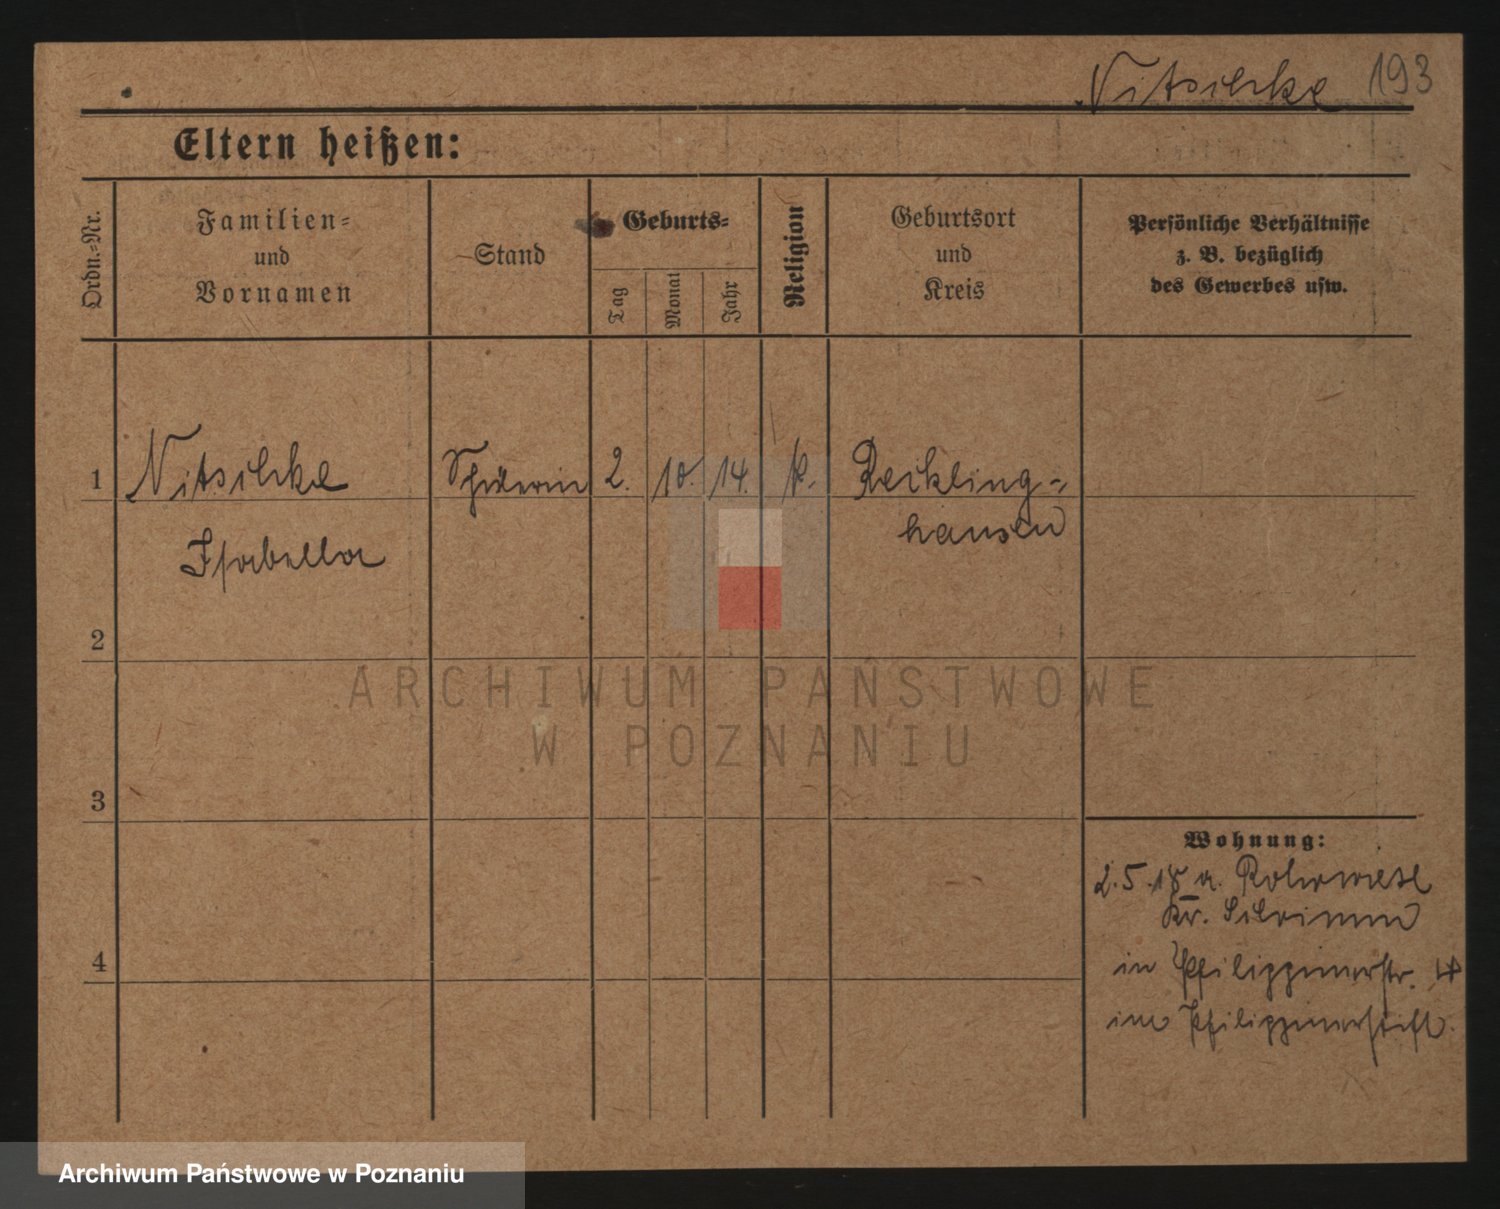 Nitschke 193
Eltern heißen:
Ordn.=Nr.
Familien=
und
Vornamen
Stand
Geburts=
Tag
Monat
Jahr
Religion
Geburtsort
und
Kreis
Persönliche Verhältnisse
z. B. bezüglich
des Gewerbes usw.
1 Nitschke Schülerin 2. 10. 14. k. Reckling=
Isabella hausen
2
3
4
Wohnung:
2.5.18 a. Rohrwiese
Kr. Schrimm
in Philippinerstr. 4
im Philippinerstift.
ARCHIWUM PAŃSTWOWE
W POZNANIU
Archiwum Państwowe w Poznaniu